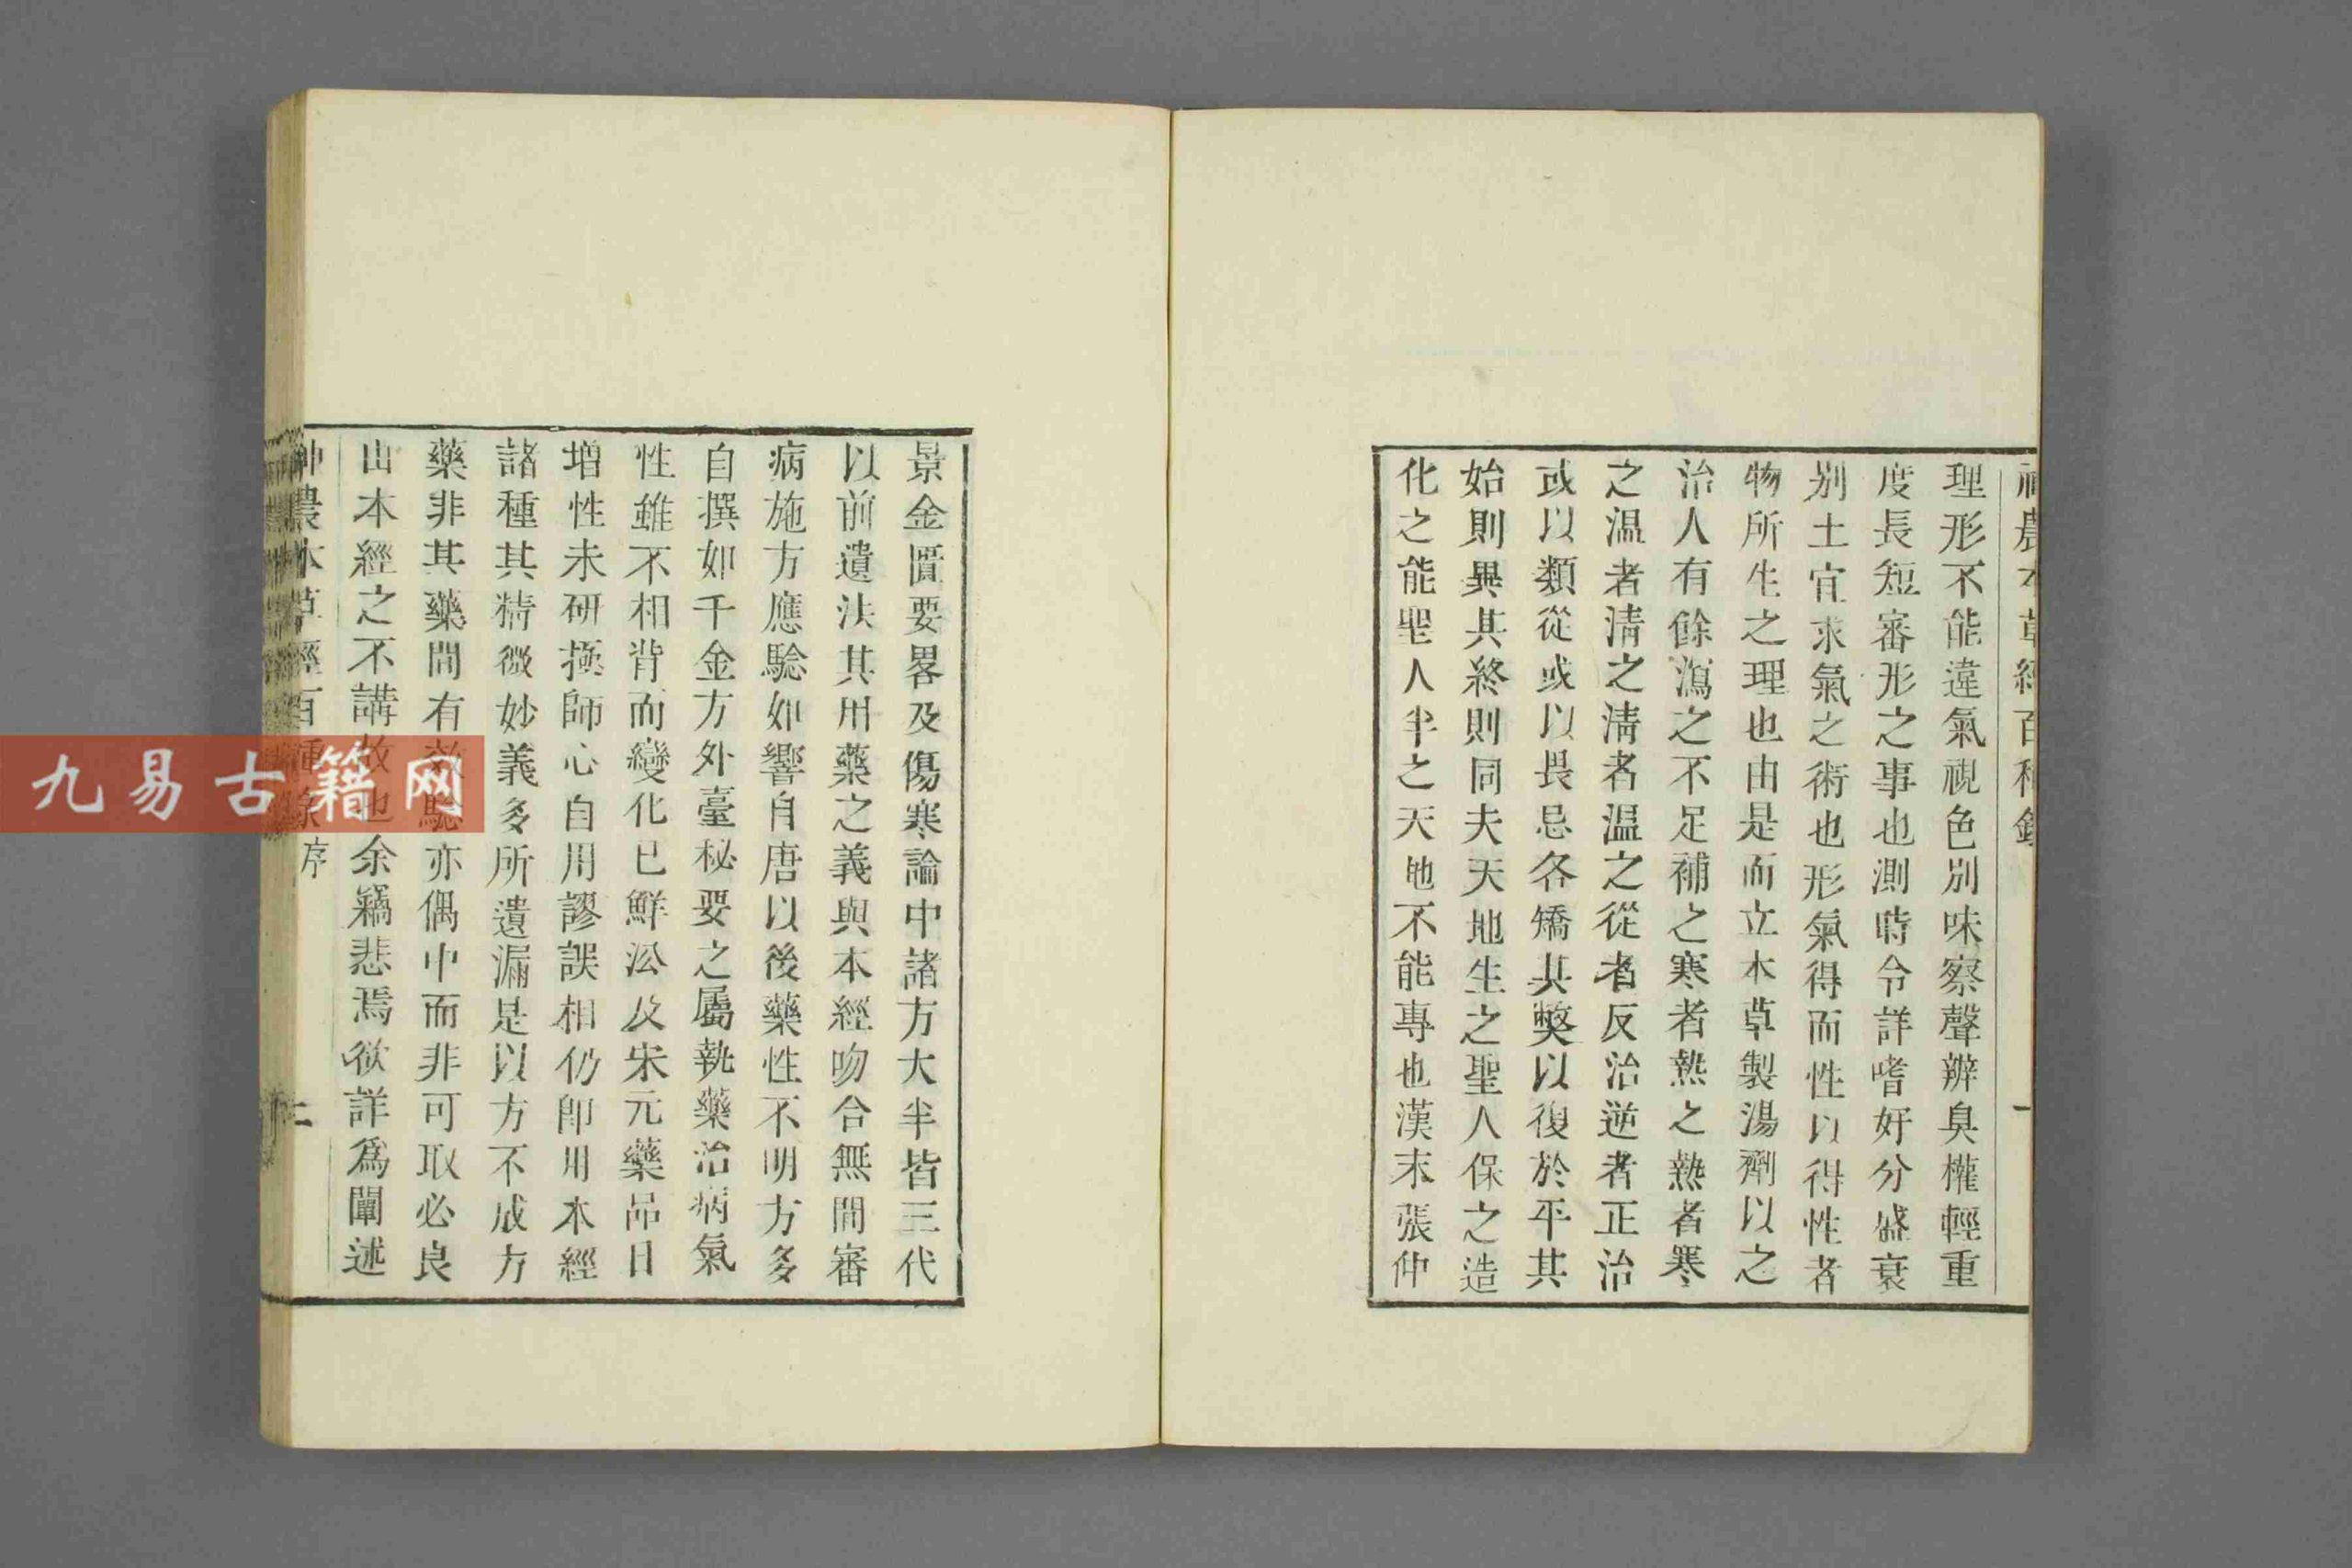 神農本草經百種錄
一
理形不能違氣視色別味察聲辨臭權輕重
度長短審形之事也測時令詳嗜好分盛衰
別土宜求氣之術也形氣得而性以得性者
物所生之理也由是而立本草製湯劑以之
治人有餘瀉之不足補之寒者熱之熱者寒
之温者清之清者温之從者反治逆者正治
或以類從或以畏忌各矯其獘以復於平其
始則異其終則同夫天地生之聖人保之造
化之能聖人半之天地不能專也漢末張仲
景金匱要畧及傷寒論中諸方大半皆三代
以前遺法其用藥之義與本經吻合無間審
病施方應驗如響自唐以後藥性不明方多
自撰如千金方外臺秘要之屬執藥治病氣
性雖不相背而變化已鮮沿及宋元藥品日
增性未研極師心自用謬誤相仍即用本經
諸種其精微妙義多所遺漏是以方不成方
藥非其藥間有效驗亦偶中而非可取必良
由本經之不講故也余竊悲焉欲詳爲闡述
神農本草經百種錄序
二
九易古籍网